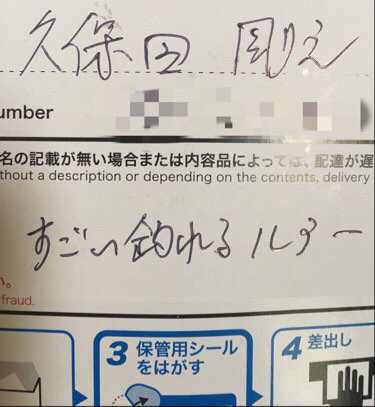 久保田 剛之
umber
名の記載が無い場合または内容品によっては、配達が遅
thout a description or depending on the contents, delivery
すごい釣れるルアー
い。
fraud.
3 保管用シール
をはがす
4 差出し